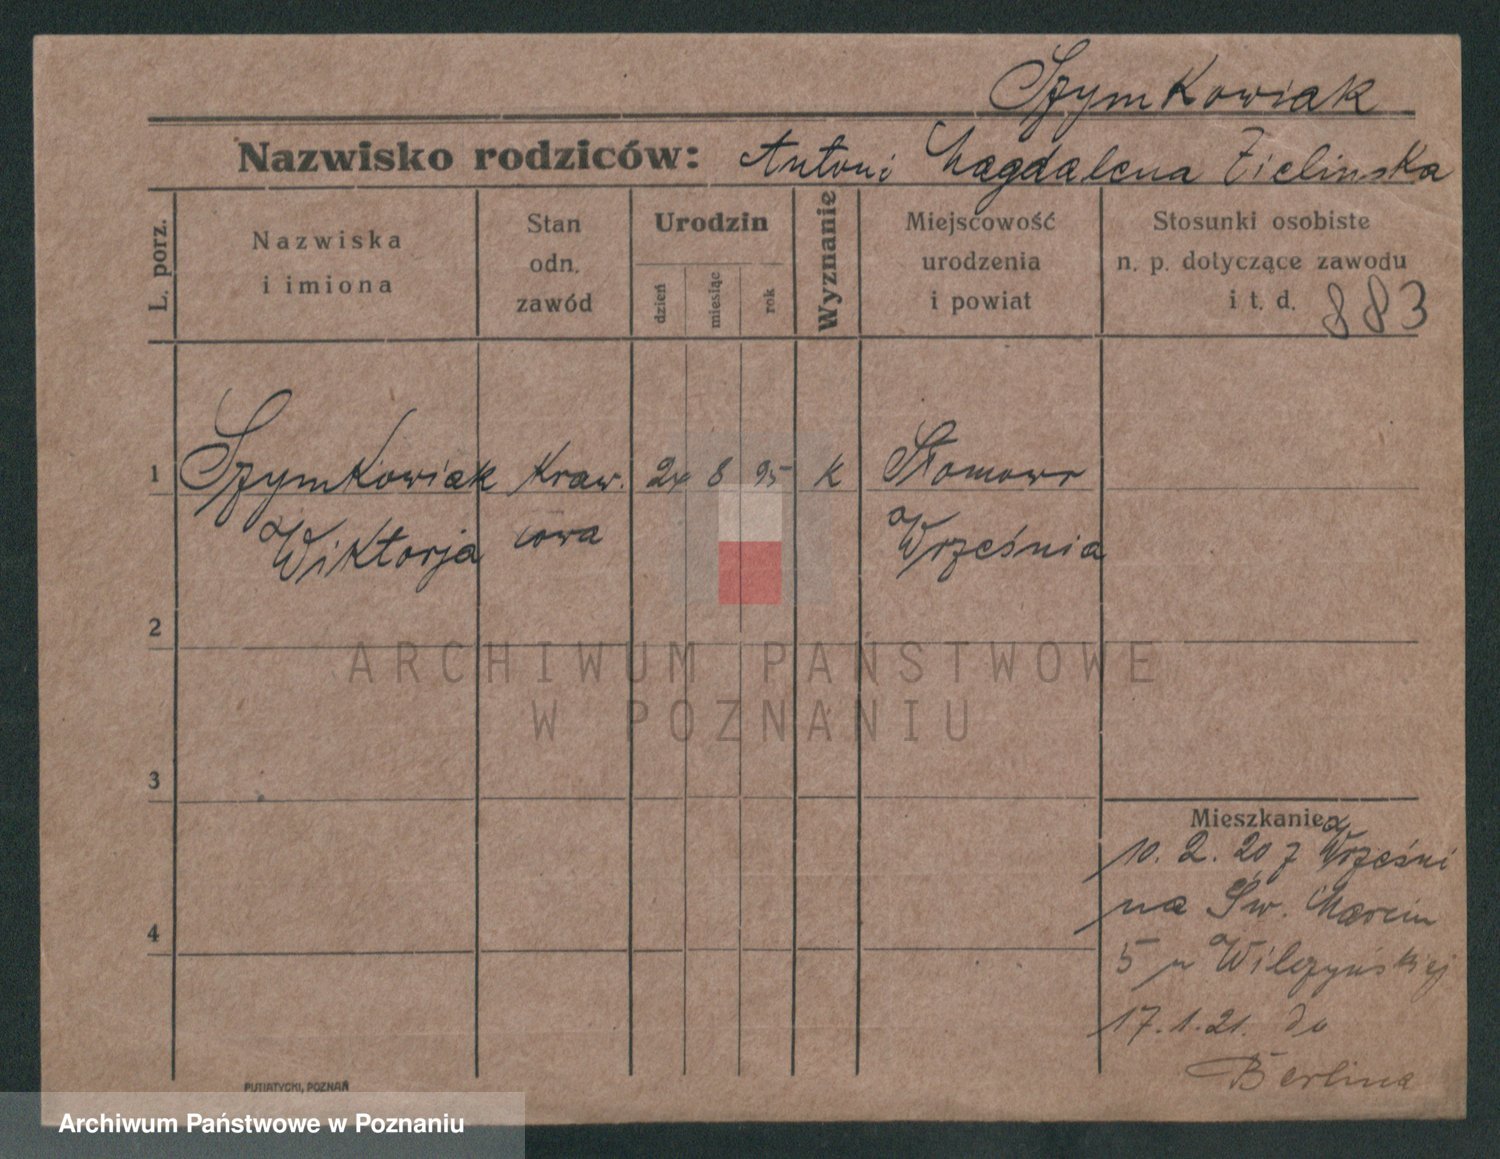 Szymkowiak
Nazwisko rodziców: Antoni Magdalena Zielinska
L. porz.
Nazwiska
i imiona
Stan
odn.
zawód
Urodzin
dzień
miesiąc
rok
Wyznanie
Miejscowość
urodzenia
i powiat
Stosunki osobiste
n. p. dotyczące zawodu
i t. d. 883
1 Szymkowiak Kraw. 24 8 95 K
Wiktorja cowa Września
2
ARCHIWUM PAŃSTWOWE
W POZNANIU
3
4
Mieszkanie
10. 2. 20 z Wrześni
na Św. Marcin
5 u Wilczyńskiej
17. 1. 21. do
Berlina
PUTIATYCKI, POZNAŃ
Archiwum Państwowe w Poznaniu